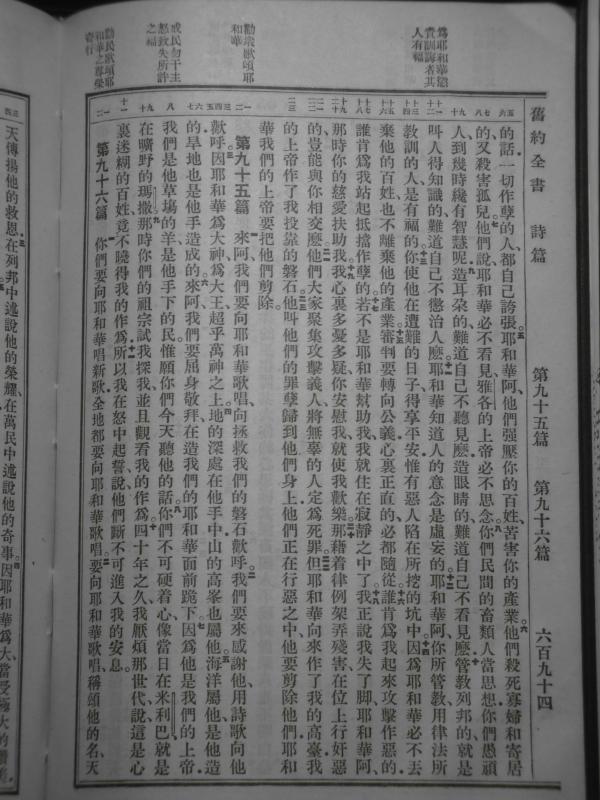 舊約全書 詩篇 第九十五篇 第九十六篇 六百九十四
爲耶和華懲
責訓誨者其
人有福
勸衆歌頌耶
和華
戒民勿干主
怒致失所許
之福
勸民歌頌耶
和華之尊榮
奇行
的話一切作孽的人都自己誇張耶和華阿他們强壓你的百姓苦害你的產業他們殺死寡婦和寄居
的又殺害孤兒他們說耶和華必不看見雅各的上帝必不思念你們民間的畜類人當思想你們愚頑
人到幾時纔有智慧呢造耳朶的難道自己不聽見麽造眼睛的難道自己不看見麽管教列邦的就是
叫人得知識的難道自己不懲治人麽耶和華知道人的意念是虛妄的耶和華阿你所管教用律法所
教訓的人是有福的你使他在遭難的日子得享平安惟有惡人陷在所挖的坑中因爲耶和華必不丟
棄他的百姓也不離棄他的產業審判要轉向公義心裏正直的必都隨從誰肯爲我起來攻擊作惡的
誰肯爲我站起抵擋作孽的若不是耶和華幫助我我就住在寂靜之中了我正說我失了脚耶和華阿
那時你的慈愛扶助我我心裏多憂多疑你安慰我就使我歡樂那藉着律例架弄殘害在位上行奸惡
的豈能與你相交麽他們大家聚集攻擊義人將無辜的人定爲死罪但耶和華向來作了我的高臺我
的上帝作了我投靠的磐石他叫他們的罪孽歸到他們身上他們正在行惡之中他要剪除他們耶和
華我們的上帝要把他們剪除
第九十五篇 來阿我們要向耶和華歌唱向拯救我們的磐石歡呼我們要來感謝他用詩歌向他
歡呼因耶和華爲大神爲大王超乎萬神之上地的深處在他手中山的高峯也屬他海洋屬他是他造
的旱地也是他手造成的來阿我們要屈身敬拜在造我們的耶和華面前跪下因爲他是我們的上帝
我們是他草塲的羊是他手下的民惟願你們今天聽他的話你們不可硬着心像當日在米利巴就是
在曠野的瑪撒那時你們的祖宗試我探我並且觀看我的作爲四十年之久我厭煩那世代說這是心
裏迷糊的百姓竟不曉得我的作爲所以我在怒中起誓說他們斷不可進入我的安息
第九十六篇 你們要向耶和華唱新歌全地都要向耶和華歌唱要向耶和華歌唱稱頌他的名天
天傳揚他的救恩在列邦中述說他的榮耀在萬民中述說他的奇事因耶和華爲大當受極大的讚美